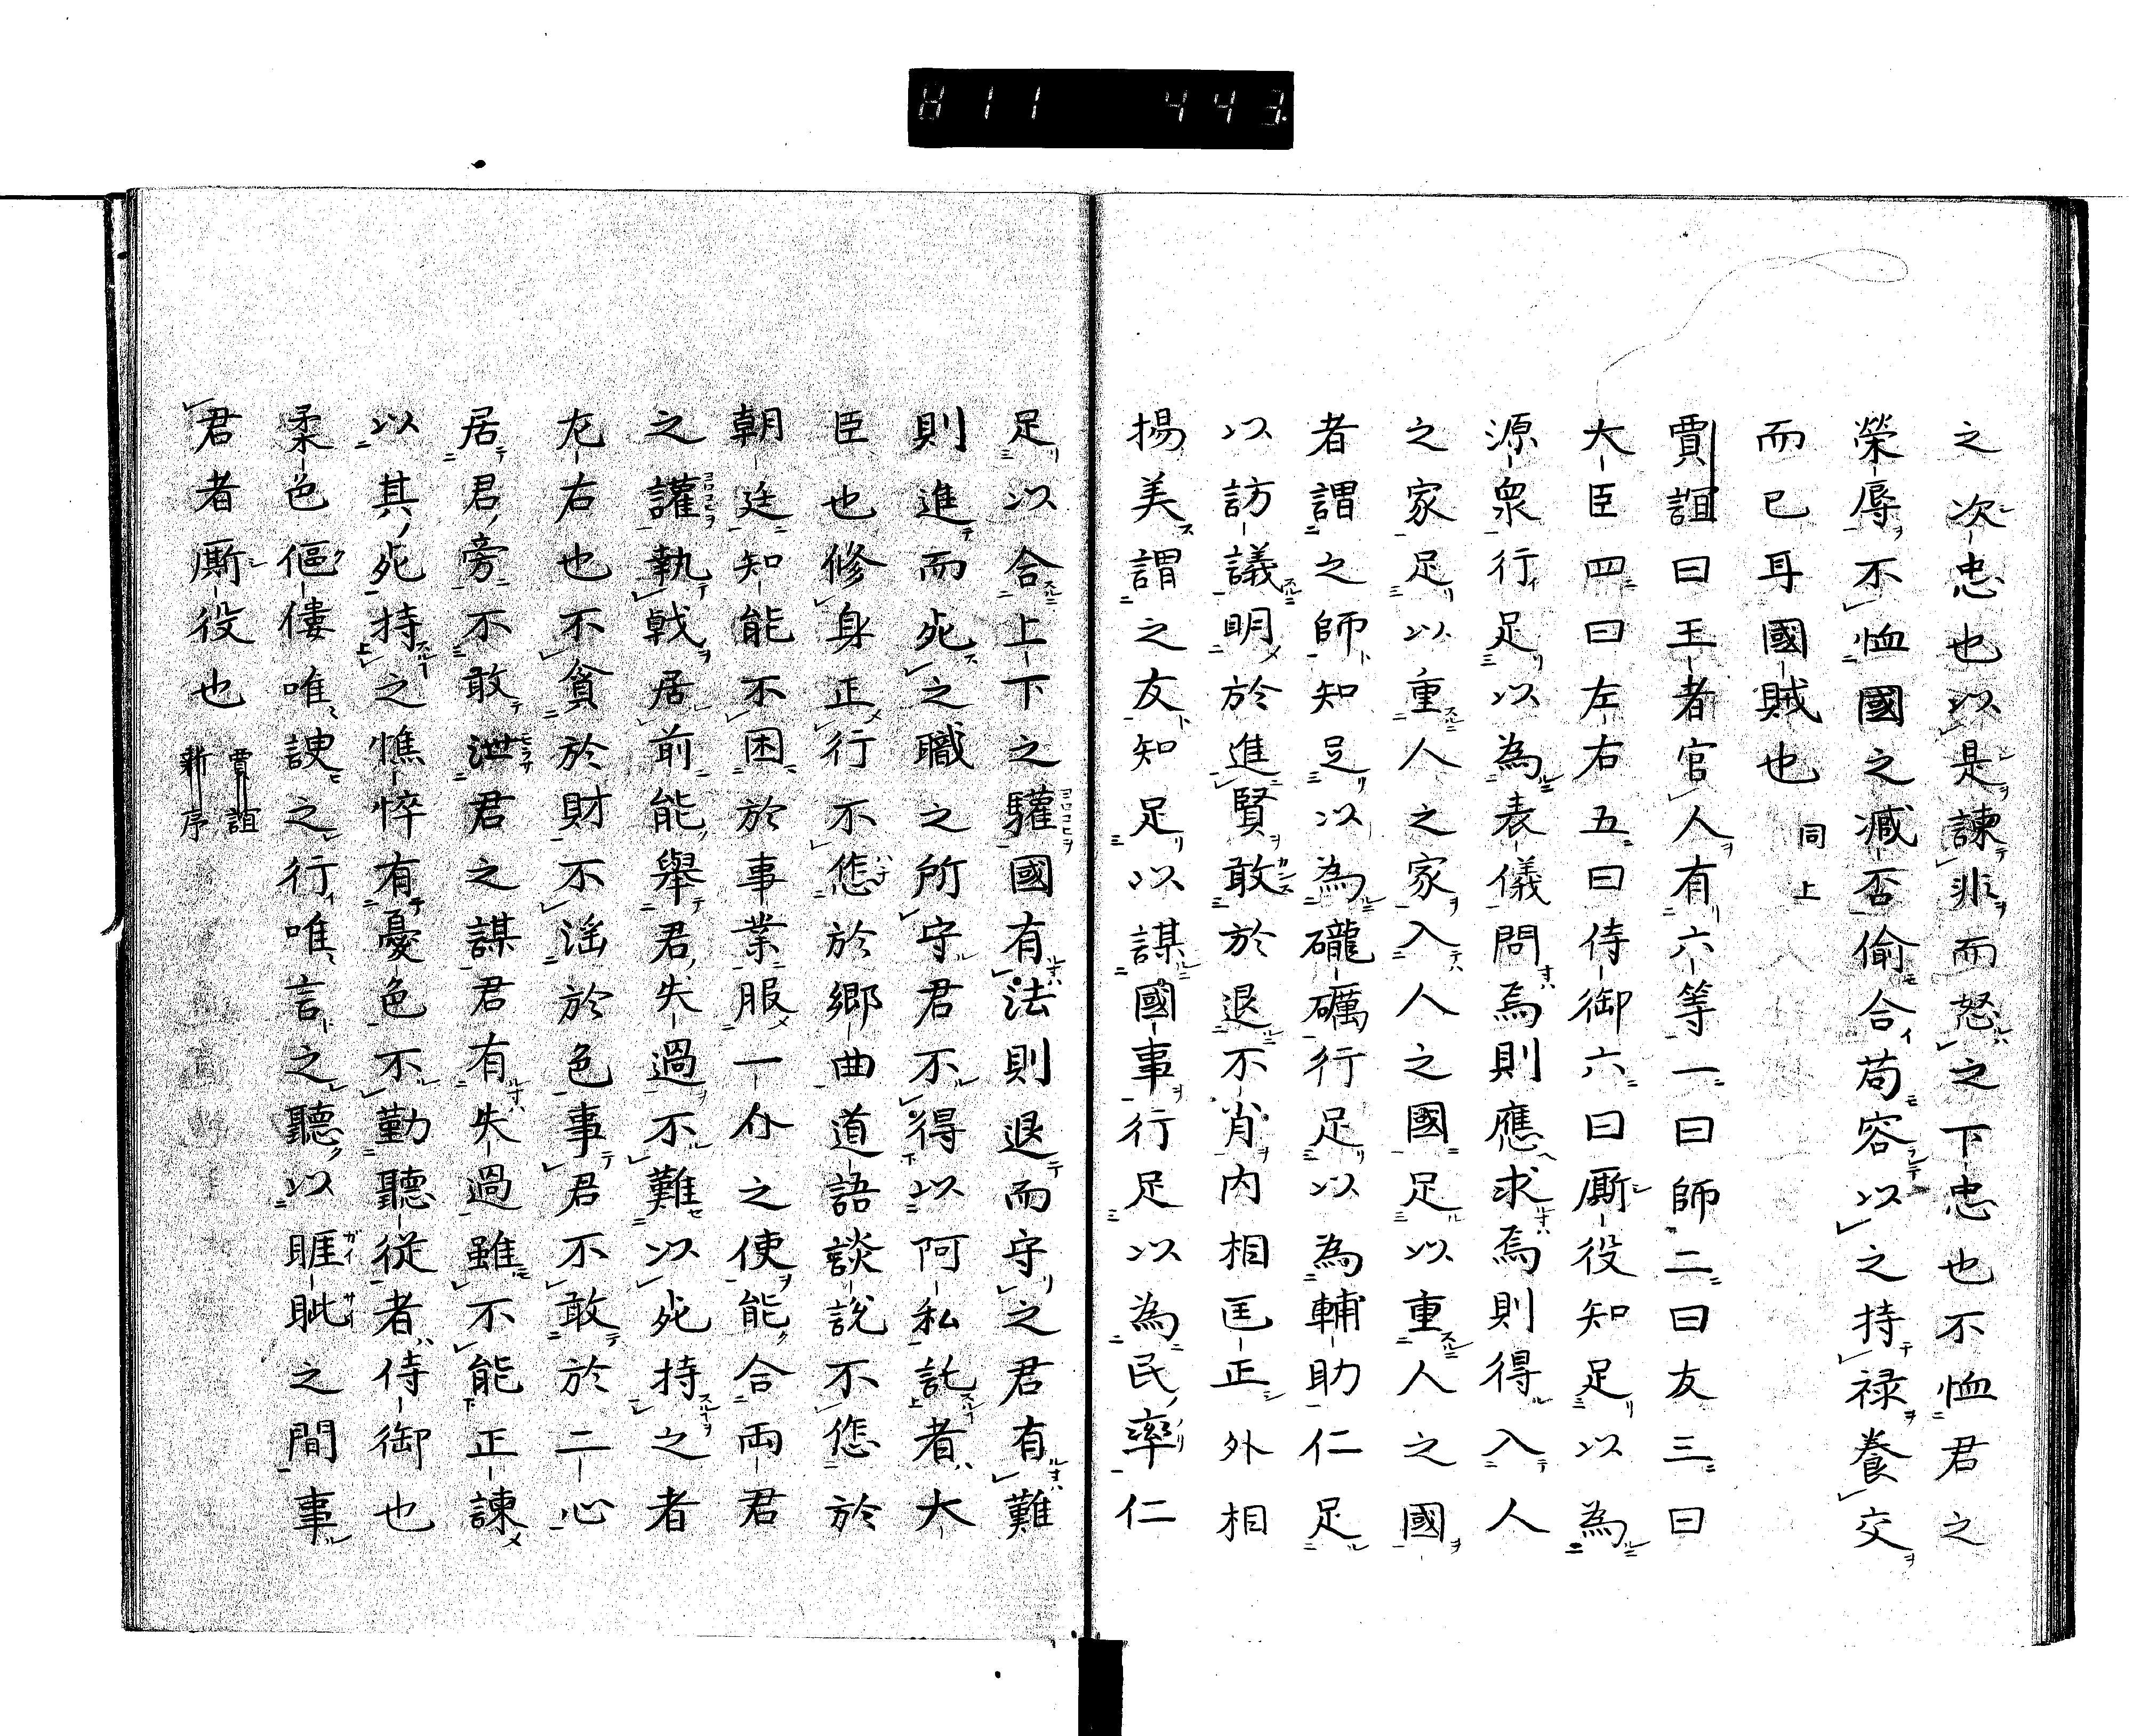 811 443
之次忠也以是諫非而怒之下忠也不恤君之
榮辱不恤國之滅否偷合苟容以之持禄養交
而已耳國賊也 同上
賈誼曰王者官人有六等一曰師二曰友三曰
大臣四曰左右五曰侍御六曰厮役知足以為
源衆行足以為表儀問焉則應求焉則得入人
之家足以重人之家入人之國足以重人之國
者謂之師知足以為礲礪行足以為輔助仁足
以訪議明於進賢敢於退不肖内相匡正外相
揚美謂之友知足以謀國事行足以為民率仁
足以合上下之驩國有法則退而守之君有難
則進而死之職之所守君不得以阿私託者大
臣也修身正行不怍於郷曲道語談説不怍於
朝廷知能不困於事業服一介之使能合両君
之讙執戟居前能舉君失過不難以死持之者
左右也不貪於財不滛於色事君不敢於二心
居君旁不敢泄君之謀君有失過雖不能正諫
以其死持之憔悴有憂色不勤聽従者侍御也
柔色傴僂唯諛之行唯言之聽以睚眦之間事
君者厮役也 賈誼
新序